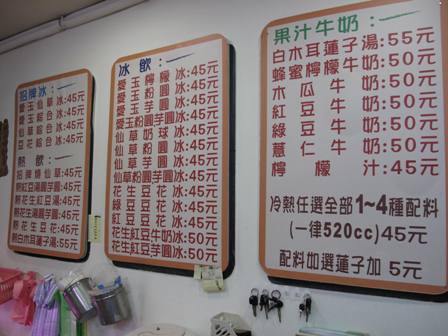 招牌冰：
愛玉仙草冰:45元
愛玉綜合冰:45元
仙草綜合冰:45元
豆花綜合冰:45元
熱飲：
招牌燒仙草:45元
熱紅豆湯圓芋圓:45元
熱花生湯圓芋圓:45元
熱花生豆花:45元
熱白木耳蓮子湯:55元
冰飲：
愛玉檸檬冰:45元
愛玉粉圓冰:45元
愛玉芋圓冰:45元
愛玉粉圓芋圓冰:45元
仙草奶球冰:45元
仙草粉圓冰:45元
仙草芋圓冰:45元
仙草粉圓芋圓冰:45元
花生豆花冰:45元
綠豆豆花冰:45元
紅豆豆花冰:45元
花生紅豆牛奶冰:50元
花生紅豆芋圓冰:50元
果汁牛奶：
白木耳蓮子湯:55元
蜂蜜檸檬牛奶:50元
木瓜牛奶:50元
紅豆牛奶:50元
綠豆牛奶:50元
薏仁牛奶:50元
檸檬汁:45元
冷熱任選全部1~4種配料
(一律520cc)45元
配料如選蓮子加 5元